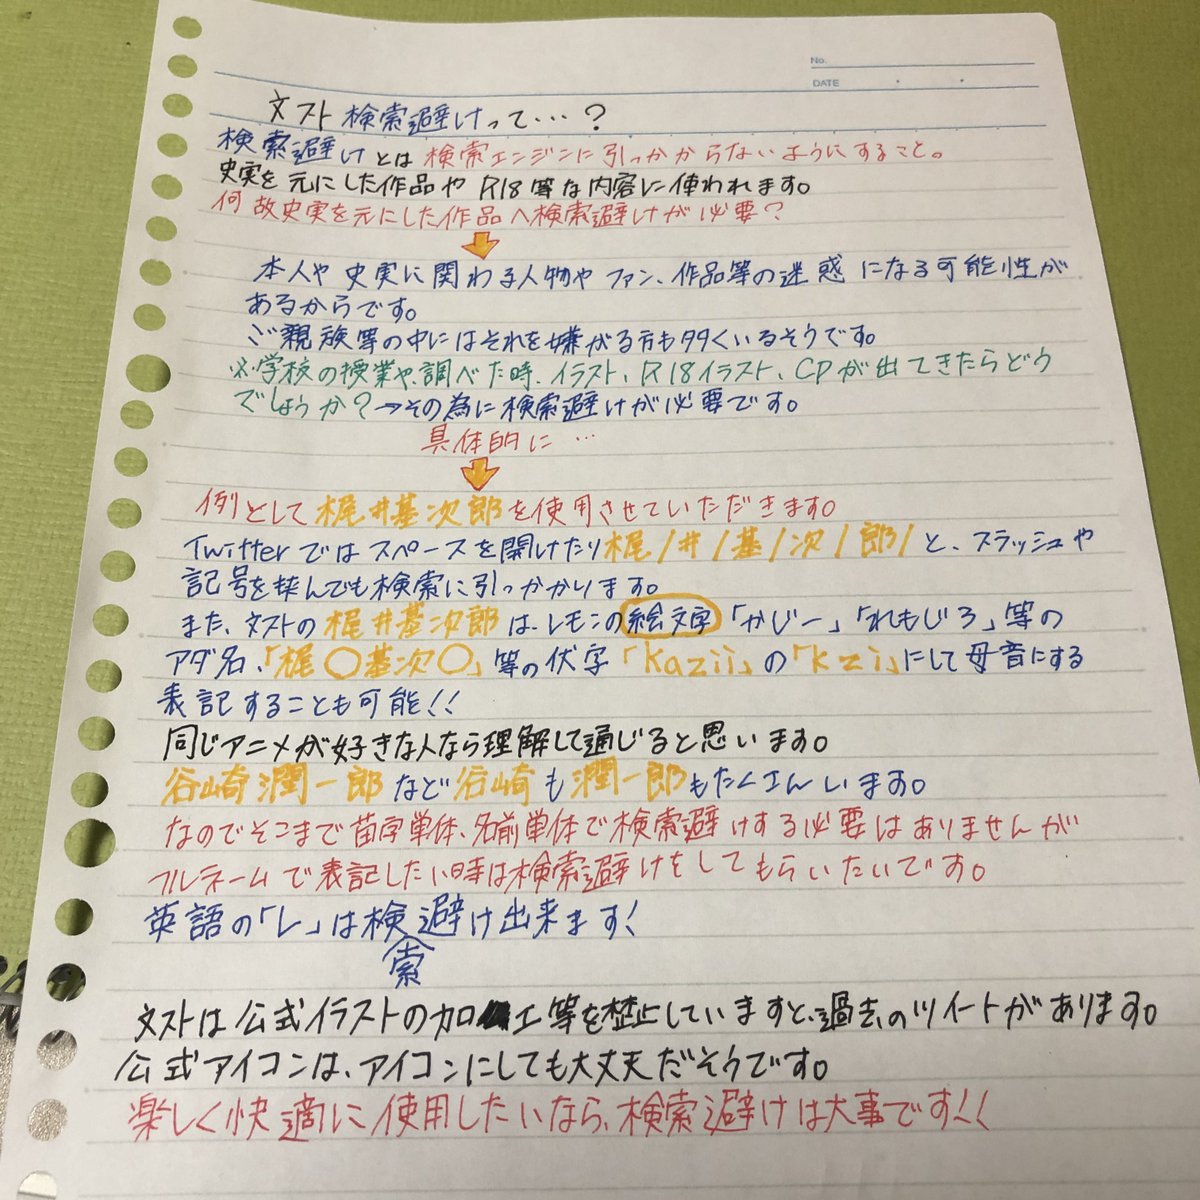 No.
DATE
文スト 検索避けって…?
検索避けとは 検索エンジンに引っかからないようにすること。
史実を元にした作品や R18等な内容に使われます。
何故史実を元にした作品へ検索避けが必要?
本人や史実に関わる人物や ファン、作品等の迷惑 になる可能性が
あるからです。
ご親族等の中にはそれを嫌がる方も多くいるそうです。
※学校の授業や、調べた時、イラスト、R18イラスト、CPが出てきたらどう
でしょうか?→その為に検索避けが必要です。
具体的に…
例として梶井基次郎を使用させていただきます。
Twitterではスペースを開けたり梶/井/基/次/郎/と、スラッシュや
記号を挟んでも検索に引っかかります。
また、文ストの梶井基次郎は、レモンの絵文字「かじー」「れもじろ」等の
アダ名、「梶〇基次〇」等の伏字「kazii」の「kzi」にして母音にする
表記することも可能!!
同じアニメが好きな人なら理解して通じると思います。
谷崎潤一郎など谷崎も潤一郎もたくさんいます。
なのでそこまで苗字単体、名前単体で検索避けする必要はありませんが
フルネームで表記したい時は検索避けをしてもらいたいです。
英語の「レ」は検索避け出来ます!
文ストは公式イラストの加工等を禁止していますと、過去のツイートがあります。
公式アイコンは、アイコンにしても大丈夫だそうです。
楽しく快適に使用したいなら、検索避けは大事です!!